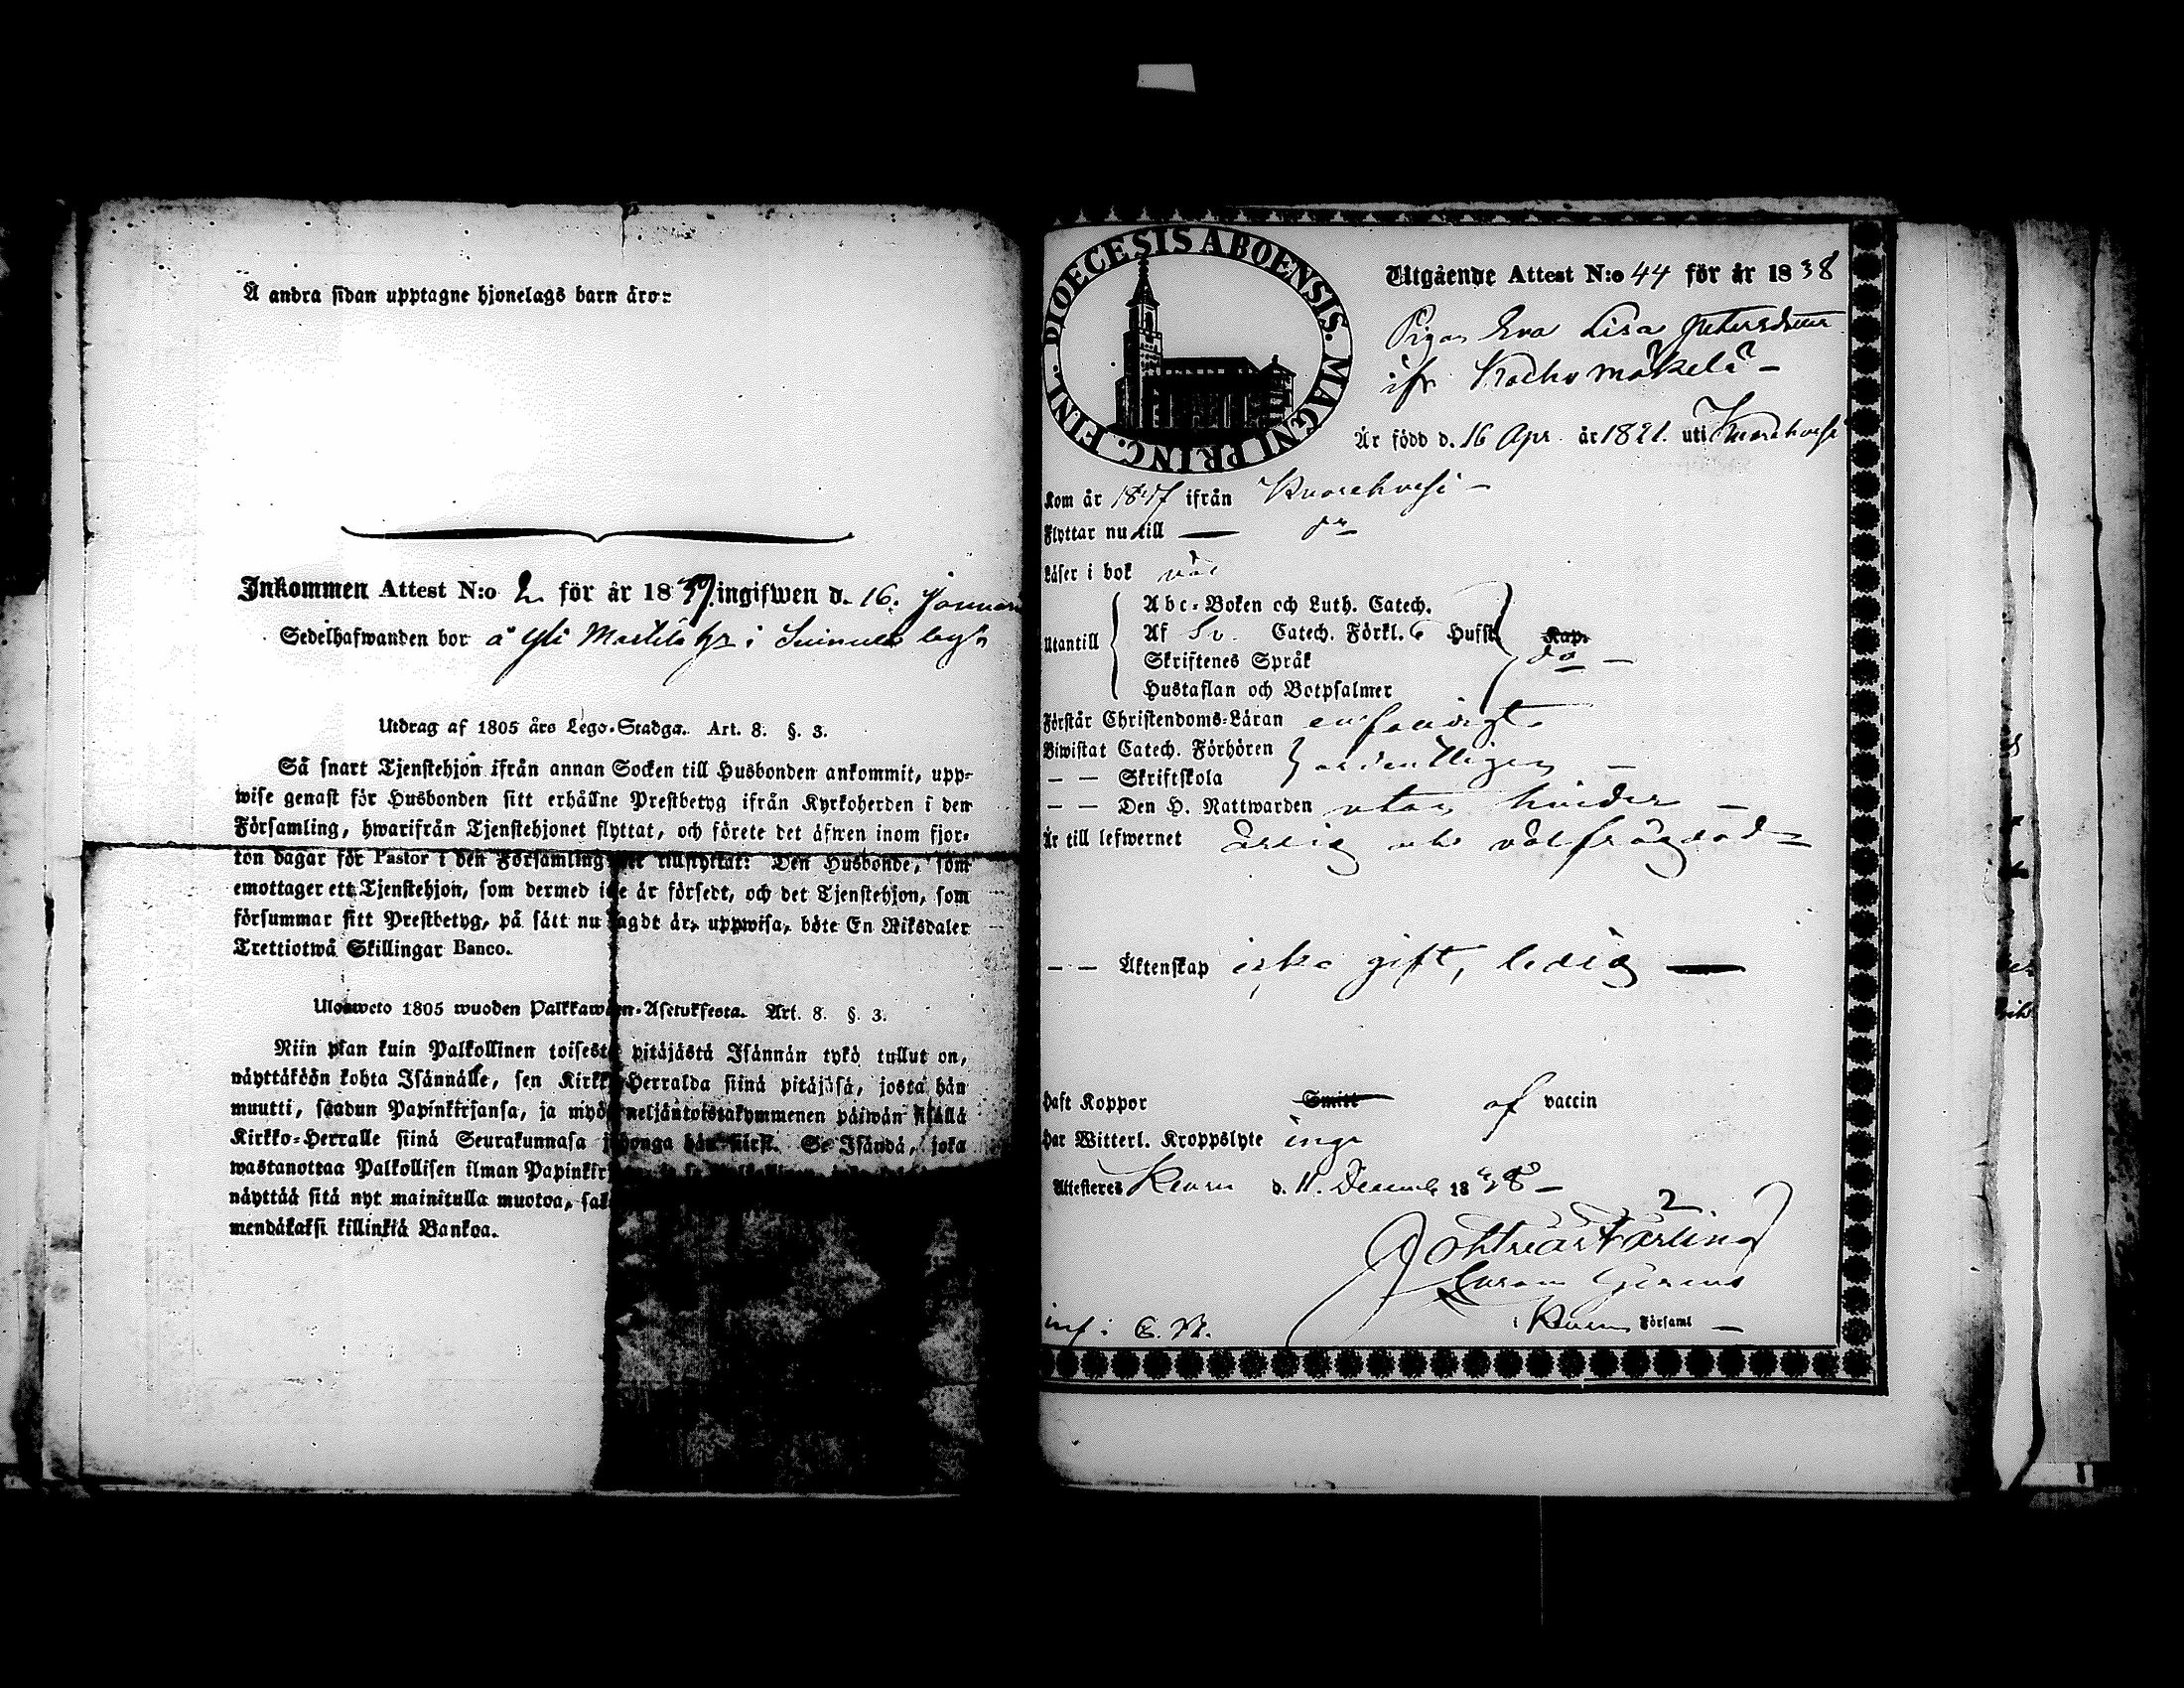 Å andra sidan upptagne hjonelags barn äro:
Inkommen Attest N:o 2 för år 1839 ingifwen d. 16. Januari
Sedelhafwanden bor å Yli Marttila hn i Suinula by
Utdrag af 1805 års Lego-Stadga. Art. 8. §. 3.
Så snart Tjenstehjon ifrån annan Socken till Husbonden ankommit, upp-
wise genast för Husbonden sitt erhållne Prestbetyg ifrån Kyrkoherden i den
Församling, hwarifrån Tjenstehjonet flyttat, och förete det äfwen inom fjor-
ton dagar för Pastor i den Församling det tillflyttat: Den Husbonde, som
emottager ett Tjenstehjon, som dermed icke är försedt, och det Tjenstehjon, som
försummar sitt Prestbetyg, på sätt nu sagdt är, uppwisa, böte En Riksdaler
Trettiotwå Skillingar Banco.
Ulosweto 1805 wuoden Palkkawäen-Asetuksesta. Art. 8. §. 3.
Niin pian kuin Palkollinen toisesta pitäjästä Isännän tykö tullut on,
näyttäköön kohta Isännälle, sen Kirkko-Herralda siinä pitäjäsä, josta hän
muutti, saadun Papinkirjansa, ja myös neljäntoistakymmenen päiwän sisällä
Kirkko-Herralle siinä Seurakunnasa johonga hän siirt. Se Isändä, joka
wastanottaa Palkollisen ilman Papinkir
näyttää sitä nyt mainitulla muotoa, sak
mendäkaksi killinkiä Bankoa.
DIOECESIS ABOENSIS. MAGNI PRINC. FINL.
Utgående Attest N:o 44 för år 1838
Pigan Eva Lisa Petersdotter
ifr Kocko mäkelä
Är född d. 16 Apr. år 1821. uti Kuorehvesi
Kom år 1837 ifrån Kuorehvesi
Flyttar nu till — do
Läser i bok väl
Utantill
Abc-Boken och Luth. Catech.
Af Sv. Catech. Förkl. 6 Hufst. Kap.
Skriftenes Språk do
Hustaflan och Botpsalmer
Förstår Christendoms-Läran enfaldigt
Biwistat Catech. Förhören
— — Skriftskola ordentligen
— — Den H. Nattwarden utan hinder
Är till lefwernet ärlig och välfrägdad
— — Äktenskap icke gift, ledig
Haft Koppor Smitt af vaccin
Har Witterl. Kroppslyte inga
Attesteres Keuru d. 11. Decemb 1838
2.
i Keuru Församl
inf: C. M.